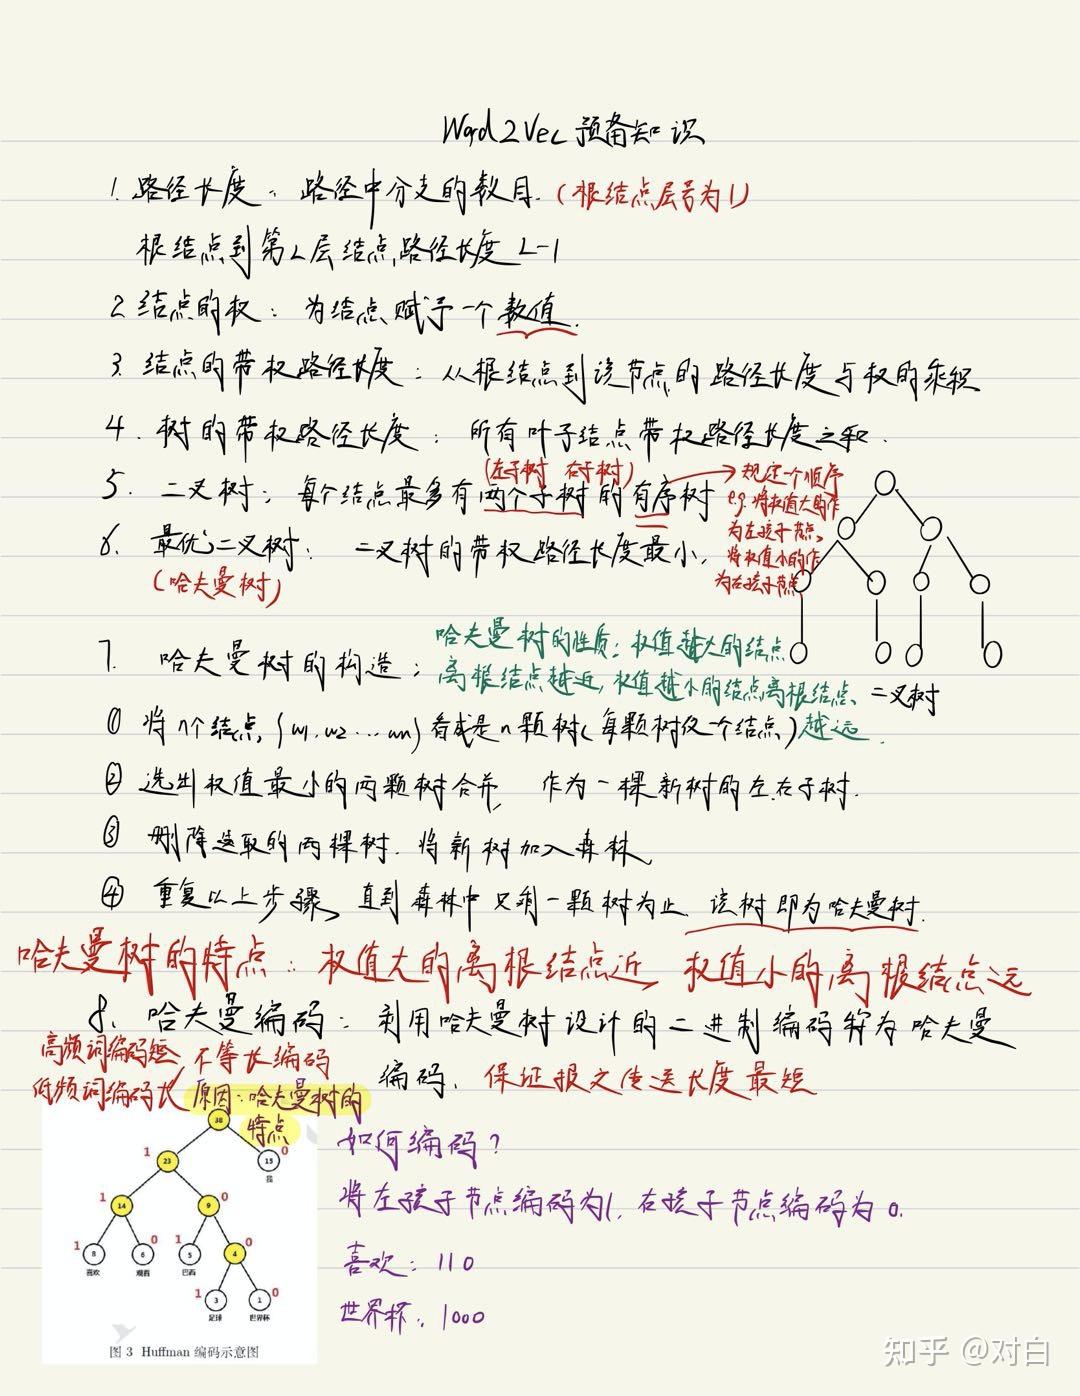 Word2Vec 预备知识
1. 路径长度: 路径中分支的数目. (根结点层号为1)
根结点到第L层结点, 路径长度 L-1
2. 结点的权: 为结点赋予一个数值.
3. 结点的带权路径长度: 从根结点到该节点的路径长度与权的乘积
4. 树的带权路径长度: 所有叶子结点带权路径长度之和.
(左子树 右子树)
5. 二叉树: 每个结点最多有两个子树的有序树
规定个顺序
e.g. 将权值大的作
为左孩子节点,
将权值小的作
为右孩子节点
6. 最优二叉树: 二叉树的带权路径长度最小.
(哈夫曼树)
二叉树
7. 哈夫曼树的构造:
哈夫曼树的性质: 权值越大的结点
离根结点越近, 权值越小的结点离根结点
越远.
① 将n个结点, {w1, w2 ... wn} 看成是n颗树(每颗树仅一个结点)
② 选出权值最小的两颗树合并, 作为一棵新树的左.右子树.
③ 删除选取的两棵树. 将新树加入森林.
④ 重复以上步骤, 直到森林中只剩一颗树为止. 该树即为哈夫曼树.
哈夫曼树的特点: 权值大的离根结点近, 权值小的离根结点远
8. 哈夫曼编码: 利用哈夫曼树设计的二进制编码称为哈夫曼
编码. 保证报文传送长度最短
高频词编码短
低频词编码长
不等长编码
原因: 哈夫曼树的
特点
38
1 23 0 15
我
1 14 0 9
1 8 0 6 1 5 0 4
喜欢 观看 巴西
1 3 0 1
足球 世界杯
图 3 Huffman 编码示意图
如何编码?
将左孩子节点编码为1, 右孩子节点编码为0.
喜欢: 110
世界杯: 1000
知乎 @对白